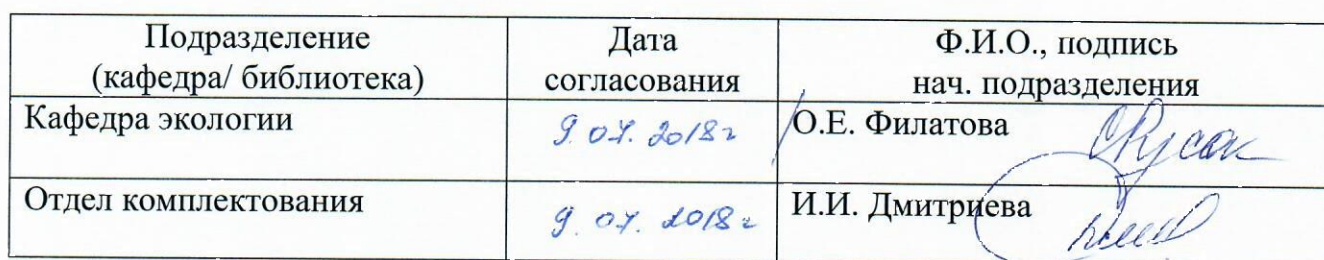 Подразделение
(кафедра/ библиотека)
Дата
согласования
Ф.И.О., подпись
нач. подразделения
Кафедра экологии
9.07.2018г
О.Е. Филатова
Отдел комплектования
9.07.2018г
И.И. Дмитриева